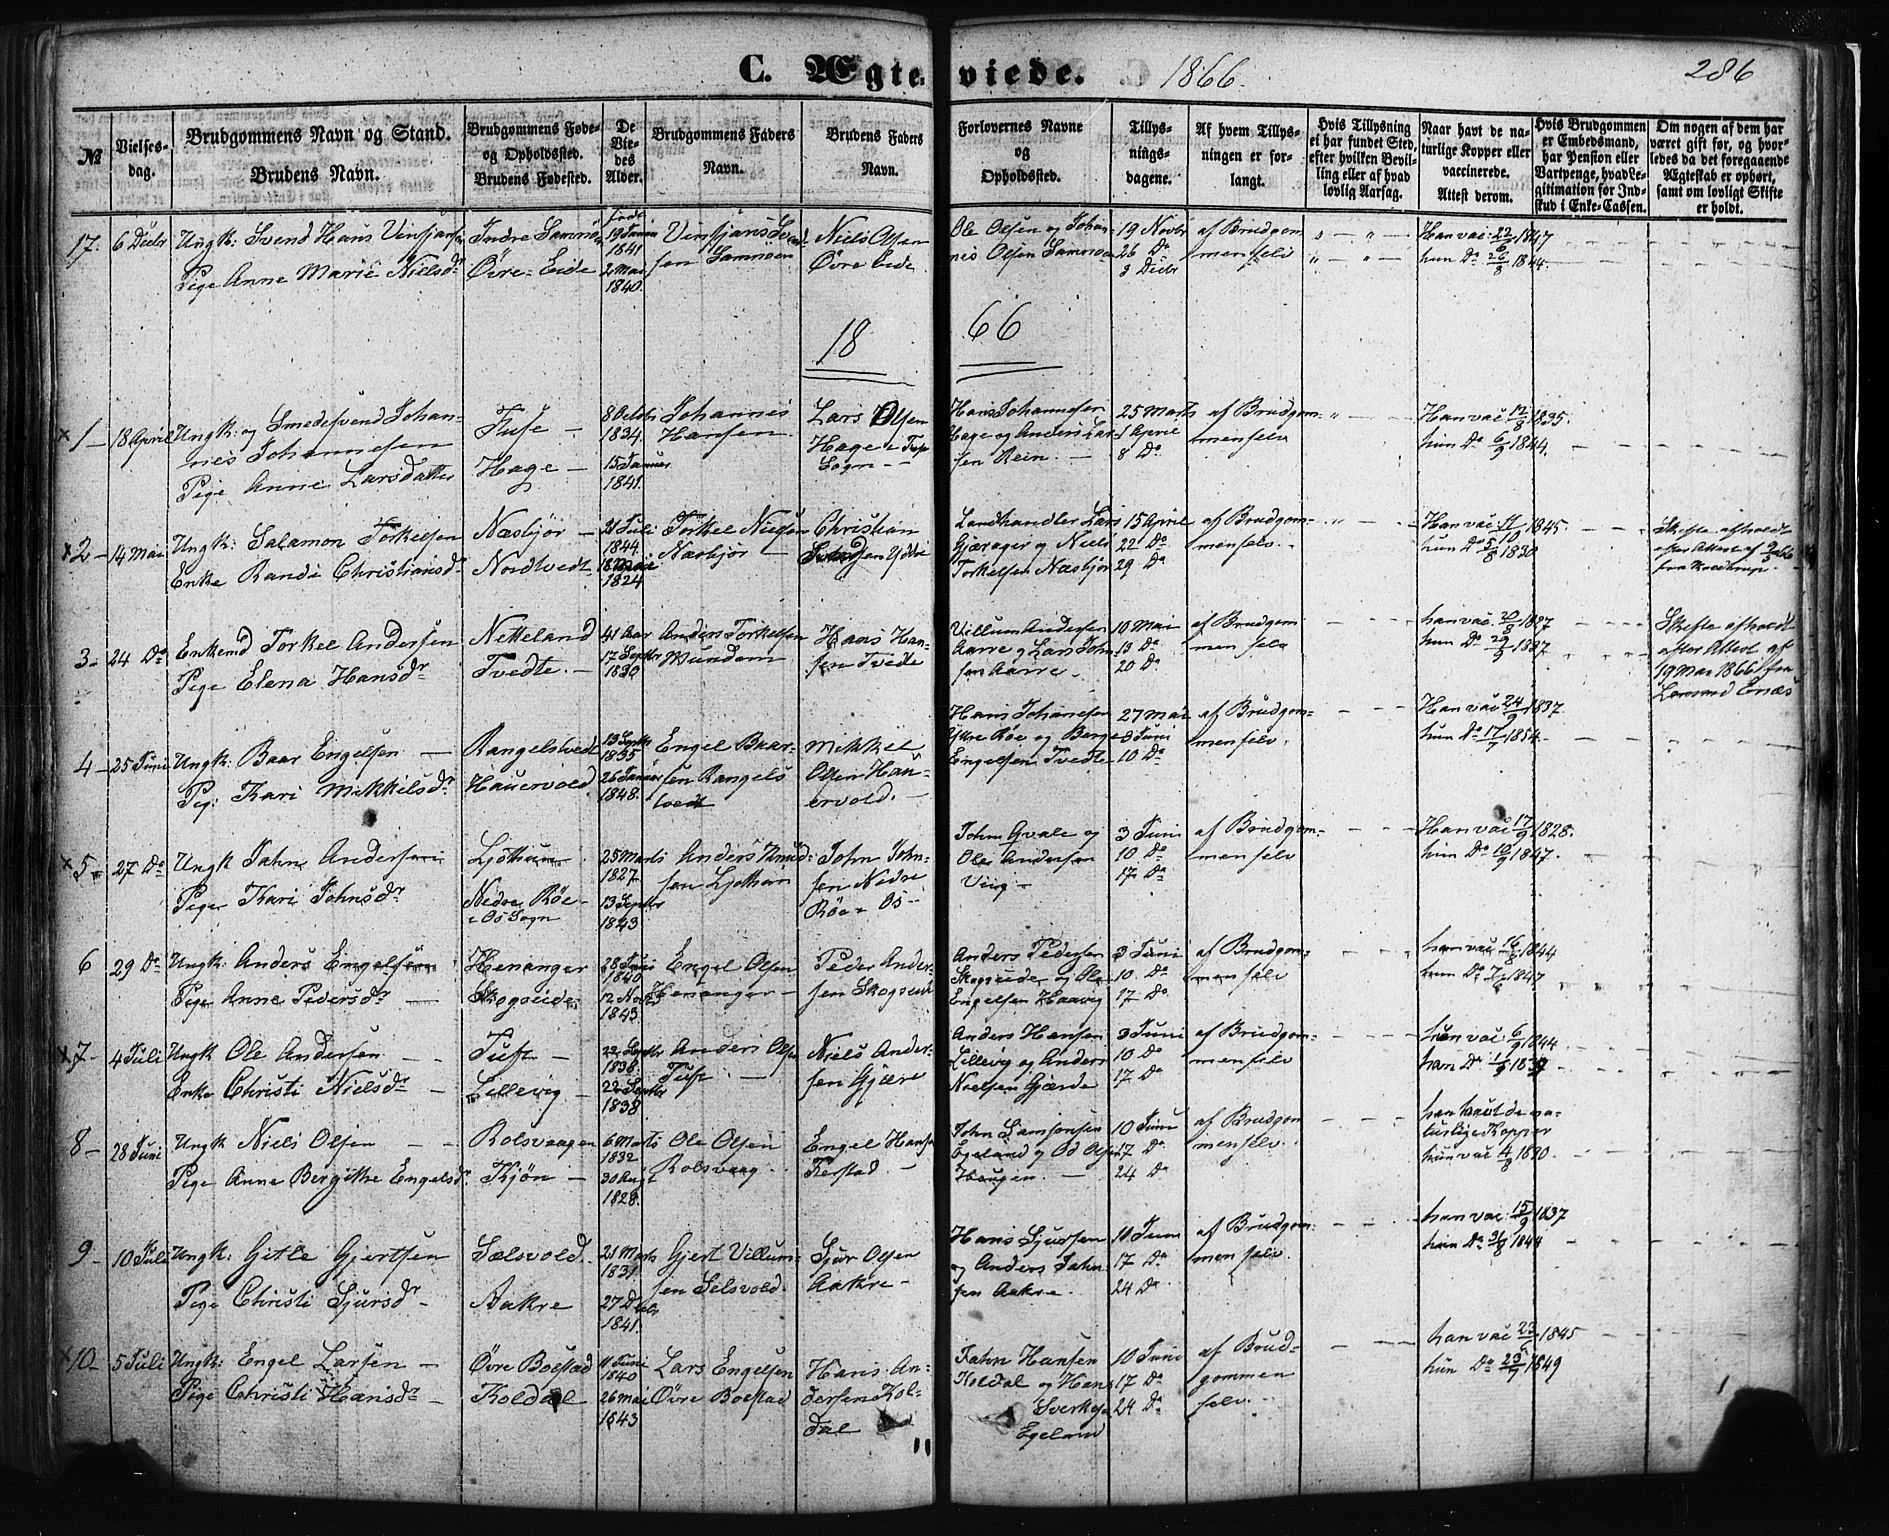 C. Ægteviede. 1866. 286
№
Vielses-
dag.
Brudgommens Navn og Stand.
Brudens Navn.
Brudgommens Føde-
og Opholdssted.
Brudens Fødested.
De
Vie-
des
Alder.
Brudgommens Faders
Navn.
Brudens Faders
Navn.
Forlovernes Navne
og
Opholdssted.
Tillys-
nings-
dagene.
Af hvem Tillys-
ningen er for-
langt.
Hvis Tillysning
ei har fundet Sted,
efter hvilken Bevil-
ling eller af hvad
lovlig Aarsag.
Naar havt de na-
turlige Kopper eller
vaccinerede.
Attest derom.
Hvis Brudgommen
er Embedsmand,
har Pension eller
Vartpenge, hvad Le-
gitimation for Ind-
skud i Enke-Cassen.
Om nogen af dem har
været gift før, og hvor-
ledes da det foregaaende
Ægteskab er ophørt,
samt om lovligt Skifte
er holdt.
17. 6 Decbr Ungk: Svend Hans Vintjansen
Pige Anne Marie Nielsdr
Indre Samnøen
Øvre-Eide
født
1841
2 Mai
1840.
Vintjans Svend-
sen Samnøen
Niels Olsen
Øvre Eide
Ole Olsen og Johan-
nis Olsen Samnøen
19 Novbr
26 Do
3 Decbr
af Brudgom
men selv
Han vac: 22/6 1847
hun Do 26/8 1844.
18 66
1 - 18 April Ungk: og Smedesvend Johan-
nes Johannesen
Pige Anne Larsdatter
Tufe -
Hage -
8 Octbr
1834.
15 Januar
1841.
Johannes
Hansen.
Lars Olsen
Hage i
Sogn -
Hans Johannesen
Hage og Anders Lar-
sen Rein. -
25 Marts
1 April
8 Do
af Brudgom-
men selv
Han vac: 12/8 1835.
hun Do 6/9 1844.
2 - 14 Mai Ungk: Salamon Torkelsen
Enke Randi Christiansdr
Næsbjør -
Nordtvedt
21 Juli
1844.
18 Mai
1824
Torkel Nielsen
Næsbjør -
Christian
Landhandler Lars
Gjærager og Niels
Torkelsen Næsbjør
15 April
22 Do
29 Do
af Brudgom-
men selv. -
Han vac: 11/10 1845.
hun Do 5/8 1830
Skifte afholdt
efter Attest af
3 - 24 Do Enkemd Torkel Andersen
Pige Elena Hansdr
Netteland
Tvedte. -
41 Aar
17 Septbr
1830
Anders Torkelsen
Mundem
Hans Han-
sen Tvedte
Villum Andersen
Aarre og Lars John-
sen Aarre -
10 Mai
13 Do
20 Do
af Brudgom
men selv
han vac: 20/8 1837
hun Do 29/9 1837.
Skifte afholdt
efter Attest af
19 Mai 1866 fra
4 - 25 Juni Ungk: Baar Engelsen -
Pig: Kari Mikkelsdr
Rangelstvedt
Hauervold.
13 Septbr
1835
26 Januar
1848.
Engel Baar-
sen Rangels
tvedt
Mikkel
Olsen Hau-
ervold. -
Hans Johansen
Ytre Røe og Berge
Engelsen Tvedte
27 Mai
3 Juni
10 Do
af Brudgom-
men selv.
Han vac 24/9 1837.
hun Do 17/7 1854.
5 - 27 Do Ungk John Andersen
Pige Kari Johnsdr
Ljøtheim
Nedre Røe -
i Os Sogn
25 Marts
1827.
13 Septbr
1843
Anders Knud-
sen Ljøtheim
John John-
sen Nedre
Røe i Os -
John Qvale og
Ole Andersen
Viig -
3 Juni
10 Do
17 Do
af Brudgom-
men selv
Han vac 17/9 1828.
hun Do 10/9 1847.
6 29 Do Ungk: Anders Engelsen
Pige Anne Pedersdr -
Henanger
Skogseide
28 Juni
1840
12 Novbr
1843.
Engel Olsen
Henanger -
Peder Ander-
sen Skogseide
Anders Pedersen
Skogseide og Ole
Engelsen Haavig
3 Juni
10 Do
17 Do
af Brudgom-
men selv
han vac 16/8 1844
hun Do 7/6 1847
7 - 4 Juli Ungk Ole Andersen - -
Enke Christi Nielsdr -
Tufe -
Lillevig -
22 Septbr
1838.
22 Septbr
1838
Anders Olsen
Tufe -
Niels Ander-
sen Gjære
Anders Hansen
Lillevig og Anders
Nielsen Gjerde
3 Juni
10 Do
17 Do
af Brudgom-
men selv
hun vac 6/9 1844.
han Do 1/9 1839
8 - 28 Juni Ungk Niels Olsen - -
Pige Anne Bergithe Engelsdr
Rolsvaagen
Kjøn -
6 Marts
1832
30 Augt
1828.
Ole Olsen
Rolsvaag.
Engel Hansen
Ferstad. -
John Samsonsen
Egeland og Od Olsen
Haugen. -
10 Juni
17 Do
24 Do
af Brudgom
men selv.
han havt de na-
turlige Kopper
hun vac 4/8 1830
9 - 10 Juli Ungk: Gitle Gjertsen
Pige Christi Sjursdr -
Sælsvold.
Aakre
21 Marts
1831.
27 Decbr
1841.
Gjert Villum-
sen Selsvold.
Sjur Olsen
Aakre -
Hans Sjursen
og Anders John-
sen Aakre. -
10 Juni
17 Do
24 Do
af Brudgom-
men selv.
han vac: 15/9 1837
hun Do 1844
10 - 5 Juli Ungk: Engel Larsen -
Pige Christi Hansdr -
Øvre Bolstad
Koldal
11 Juni
1840
26 Mai
1843
Lars Engelsen
Øvre Bolstad
Hans An-
dersen Kol-
dal
John Hansen
Koldal og Hans
Sverkes
Egeland
10 Juni
17 Do
24 Do
af Brud-
gommen
selv. -
han vac 23/6 1845
hun Do 23/9 1849